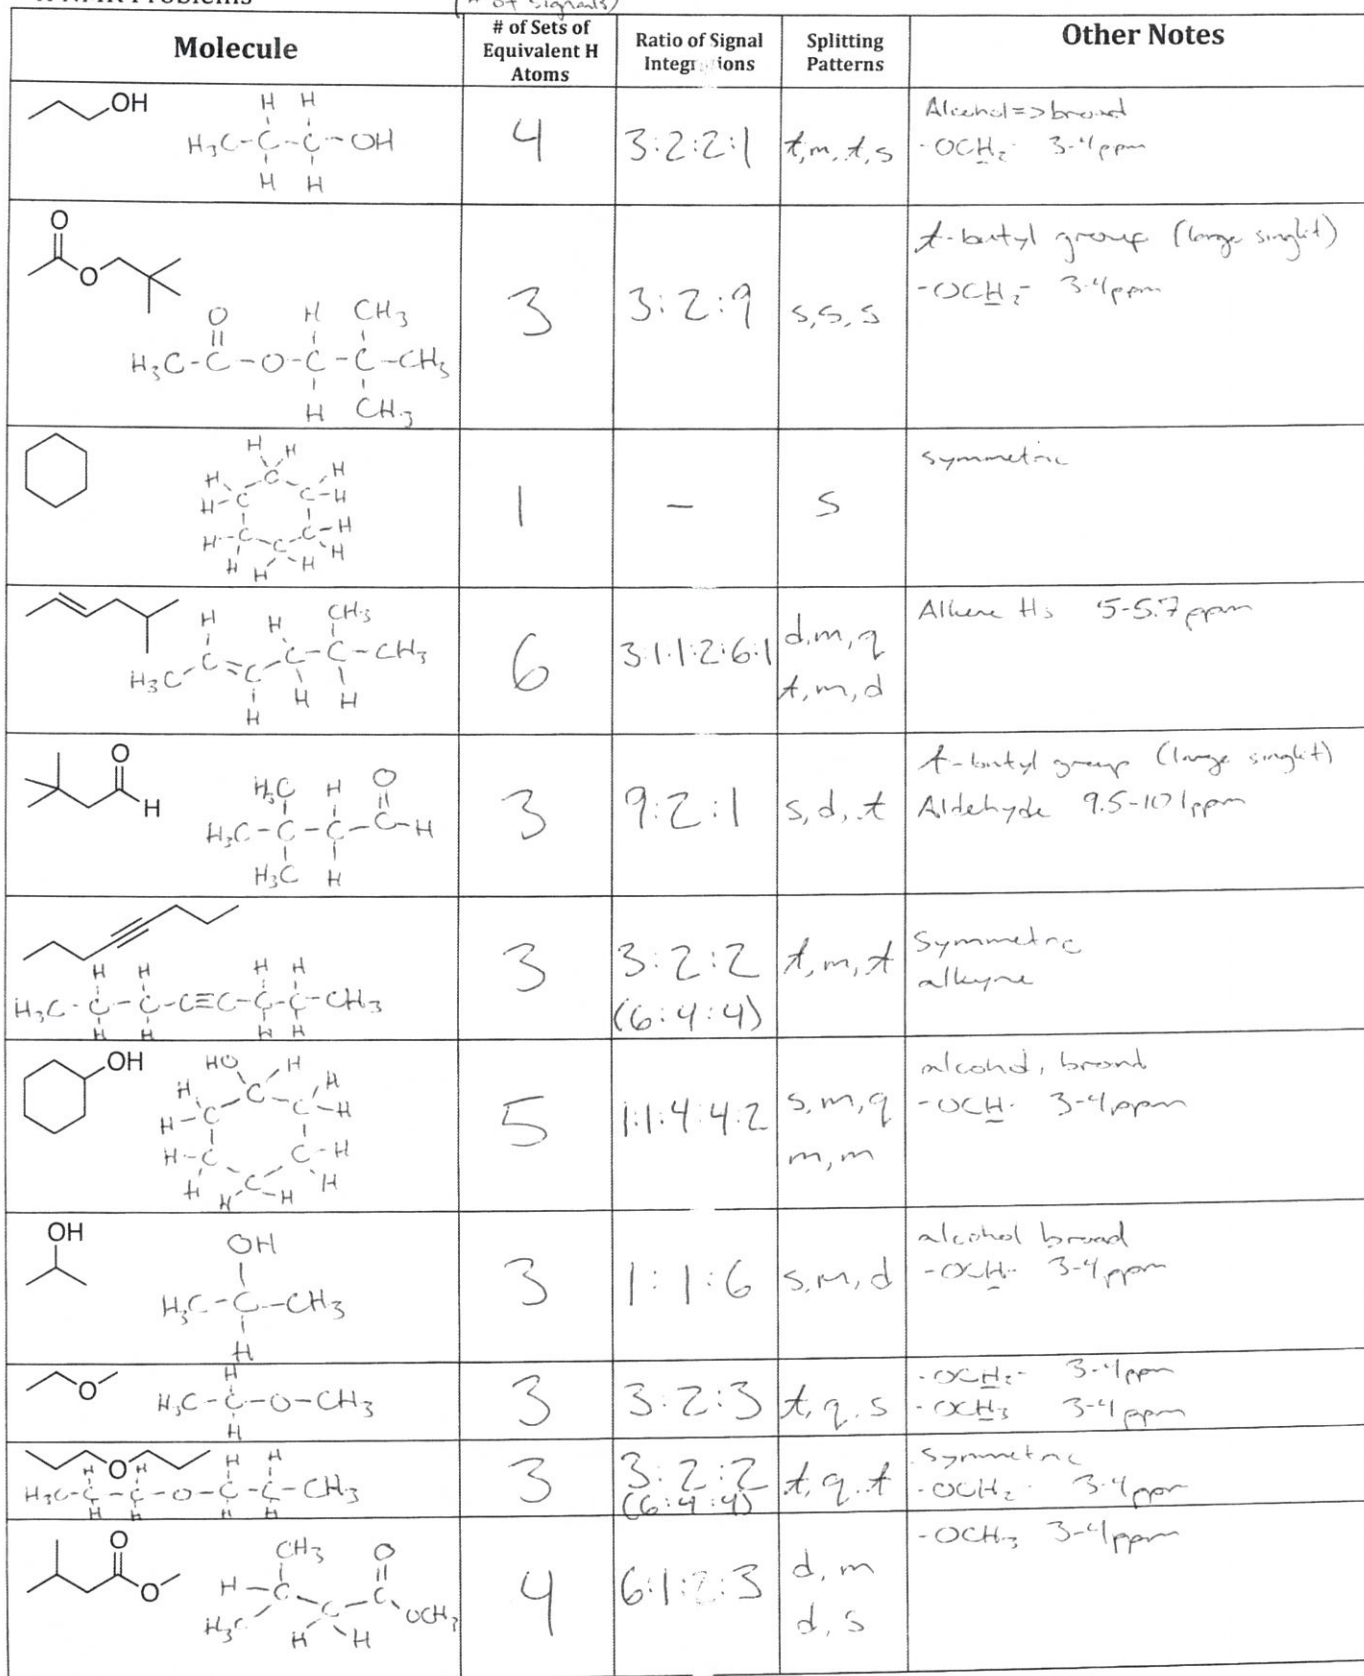 H NMR Problems
(# of signals)
Molecule
# of Sets of
Equivalent H
Atoms
Ratio of Signal
Integrations
Splitting
Patterns
Other Notes
OH
H H
H₃C-C-C-OH
H H
4
3:2:2:1
t,m,t,s
Alcohol => broad
-OCH₂- 3-4ppm
O
O
O H CH₃
H₃C-C-O-C-C-CH₃
H CH₃
3
3:2:9
s,s,s
t-butyl group (large singlet)
-OCH₂- 3-4ppm
H H
H C H
H-C C-H
H-C C-H
H C H
H H
1
-
s
symmetric
H H CH₃
H₃C C=C C-C-CH₃
H H H
6
3:1:1:2:6:1
d,m,q
t,m,d
Alkene Hs 5-5.7ppm
O
H
H₃C H O
H₃C-C-C-C-H
H₃C H
3
9:2:1
s,d,t
t-butyl group (large singlet)
Aldehyde 9.5-10.1ppm
H H H H
H₃C-C-C-C≡C-C-C-CH₃
H H H H
3
3:2:2
(6:4:4)
t,m,t
Symmetric
alkyne
OH
HO H
H C H
H-C C-H
H-C C-H
H C H
H H
5
1:1:4:4:2
s,m,q
m,m
alcohol, broad
-OCH- 3-4ppm
OH
OH
H₃C-C-CH₃
H
3
1:1:6
s,m,d
alcohol broad
-OCH- 3-4ppm
O
H
H₃C-C-O-CH₃
H
3
3:2:3
t,q,s
-OCH₂- 3-4ppm
-OCH₃ 3-4ppm
O
H H H H
H₃C-C-C-O-C-C-CH₃
H H H H
3
3:2:2
(6:4:4)
t,q,t
Symmetric
-OCH₂- 3-4ppm
O
O
CH₃ O
H-C C
H₃C C OCH₃
H H
4
6:1:2:3
d,m
d,s
-OCH₃ 3-4ppm